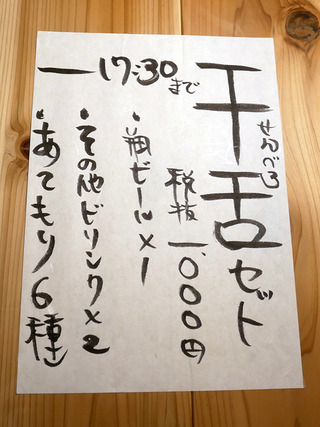 千舌セット
せんべろ
ー17:30まで
税抜一,000円
・瓶ビール×1
・その他ドリンク×2
・あてもり6種